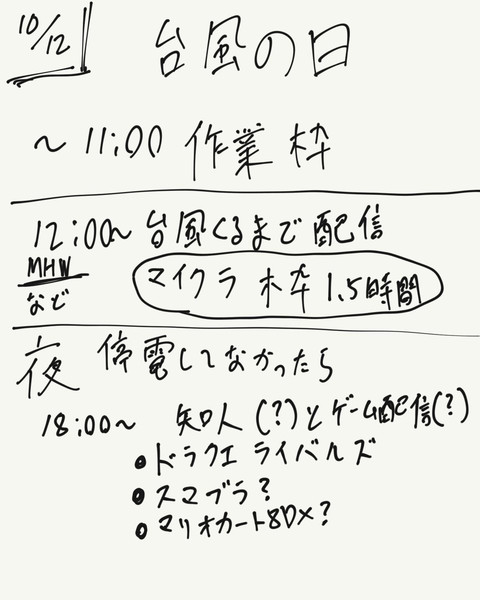 10/12
台風の日
～11:00 作業枠
12:00～台風くるまで配信
MHW
など
マイクラ枠 1.5時間
夜 停電してなかったら
18:00～ 知人(?)とゲーム配信(?)
●ドラクエライバルズ
●スマブラ?
●マリオカート8DX?